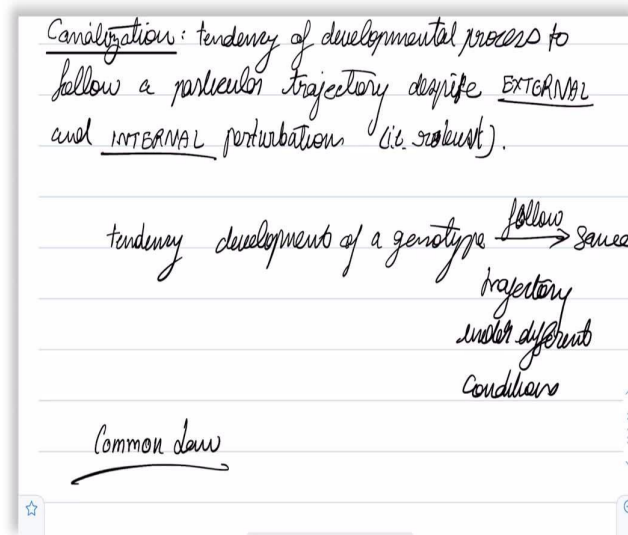 Canalization: tendency of developmental process to
follow a particular trajectory despite EXTERNAL
and INTERNAL perturbation (i.e. robust).
tendency development of a genotype follow → same
trajectory
under different
conditions
Common Law